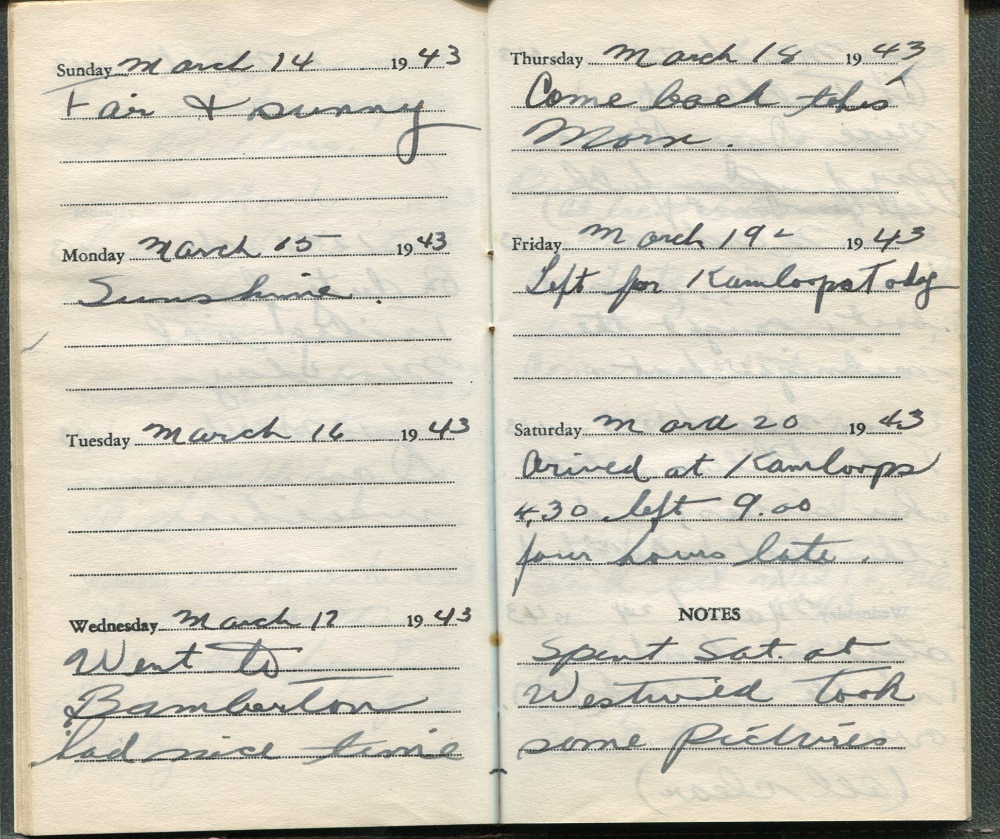 Sunday March 14 1943
Fair & sunny
Monday March 15 1943
Sunshine.
Tuesday March 16 1943
Wednesday March 17 1943
Went to
Bamberton
had nice time
Thursday March 18 1943
Come back this
Morn.
Friday March 19 1943
Left for Kamloops Today
Saturday March 20 1943
Arived at Kamloops
4.30 left 9.00
four hours late.
NOTES
Spent Sat. at
took
some Pictures